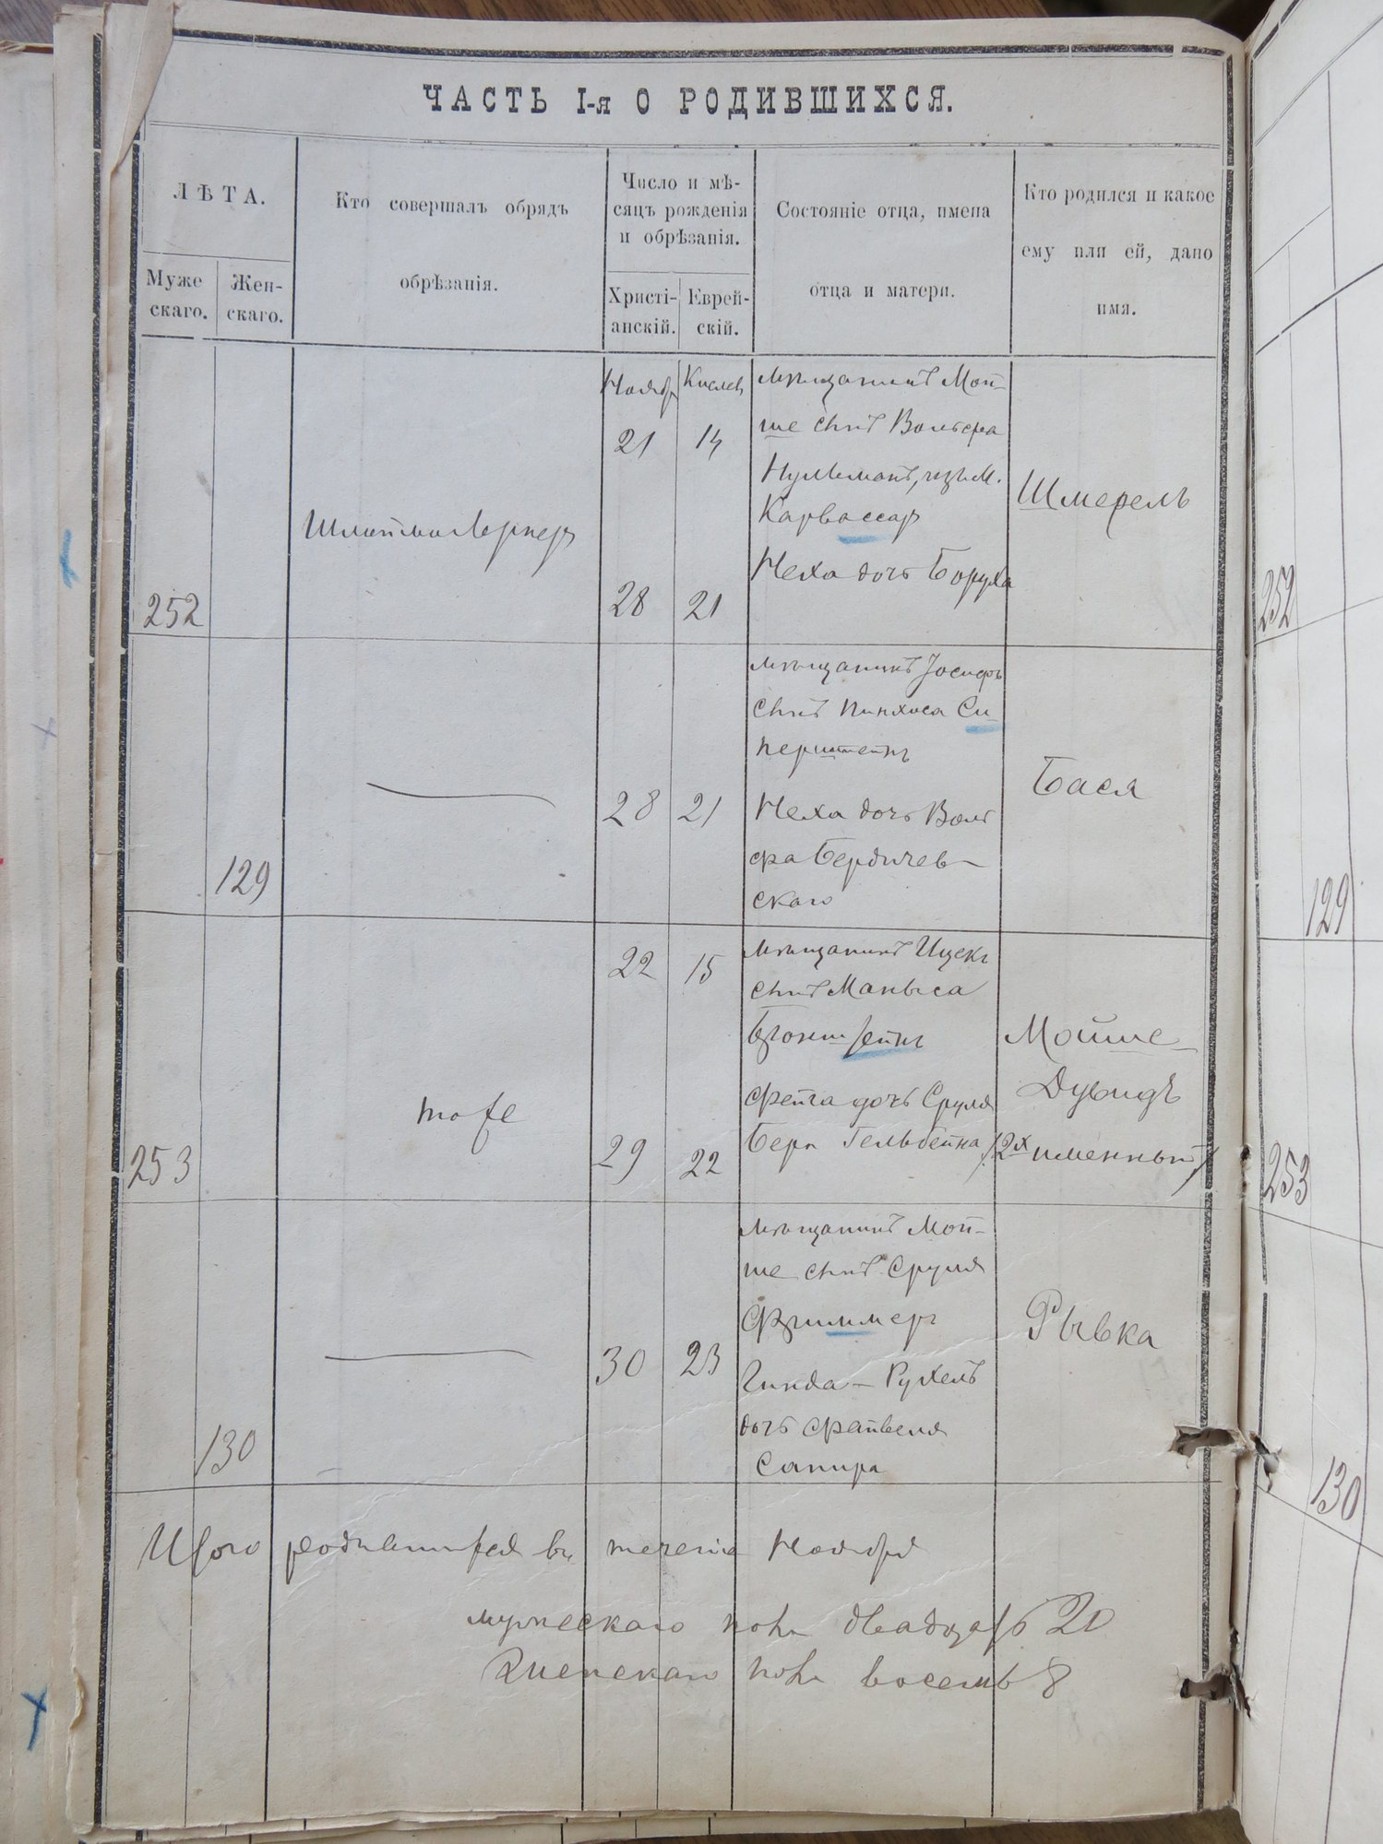 ЧАСТЬ I-я О РОДИВШИХСЯ.
ЛѢТА.
Муже
скаго.
Жен-
скаго.
Кто совершалъ обрядъ
обрѣзанія.
Число и мѣ-
сяцъ рожденія
и обрѣзанія.
Христі-
анскій.
Еврей-
скій.
Состояніе отца, имена
отца и матери.
Кто родился и какое
ему или ей, дано
имя.
252
Ноябр
21
28
Кислев
14
21
мѣщанинъ Мой-
ше сынъ Вольфа
изъ М.
Неха дочь Боруха
Шмерель
129
28
21
мѣщанинъ Іосифъ
сынъ Пинхоса Си-
перштейнъ
Неха дочь Воль
фа Бердичев-
скаго
Бася
253
тоже
22
29
15
22
мѣщанинъ Ицекъ
сынъ Маныса
Бронштейнъ
Фейга дочь Сруля
Бера Гельбейна
Мойше-
Дувидъ
/2х именный/
130
30
23
мѣщанинъ Мой-
ше сынъ Сруля
Фриммеръ
Гинда-Рухель
дочь Файвеля
Сапира
Рывка
Итого родившихся въ теченіе Ноября
мужескаго пола двадцать 20
женскаго пола восемь 8
252
129
253
130